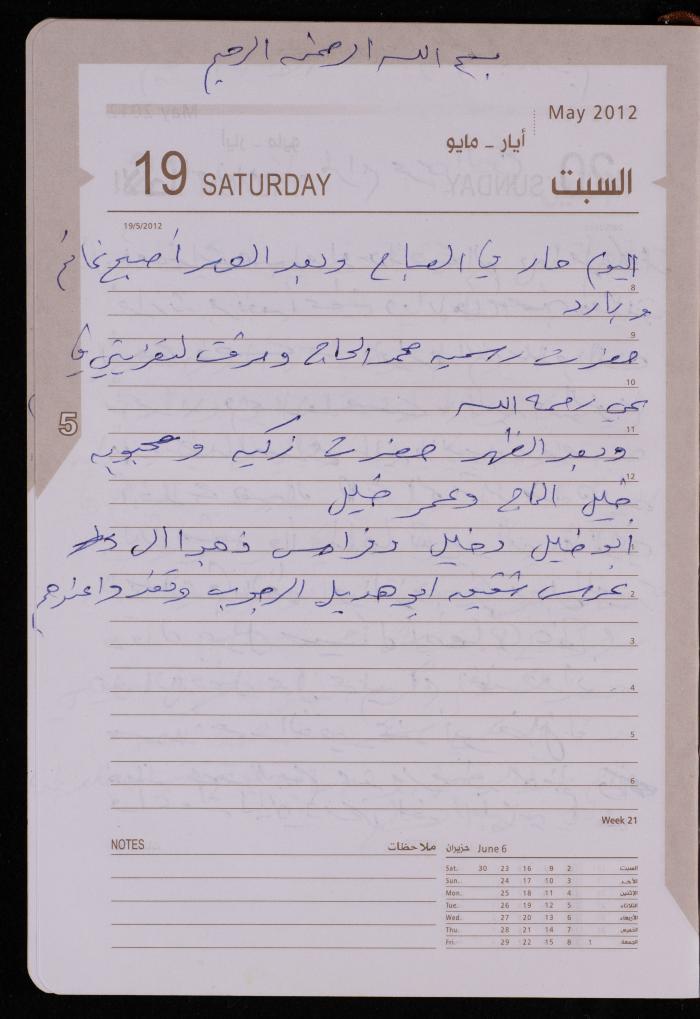 بسم الله الرحمن الرحيم
May 2012
أيار - مايو
19 SATURDAY
السبت
19/5/2012
اليوم حار في الصباح وبعد العصر أصبح غائم
8
وبارد
9
حضرت رسميه محمد الحاج ومرقت لتعزيتي في
10
يحي رحمة الله
11
5
وبعد الظهر حضرت زكيه ومحبوبه
12
خليل الحاج وعمر خليل
أبو خليل وخليل وفراس ذهبوا ال
عرس شقيقه ابو هديل الرجوب وتغدوا عندهم
2
3
4
5
6
Week 21
NOTES ملاحظات
June 6 حزيران
Sat. 30 23 16 9 2 السبت
Sun. 24 17 10 3 الأحد
Mon. 25 18 11 4 الإثنين
Tue. 26 19 12 5 الثلاثاء
Wed. 27 20 13 6 الأربعاء
Thu. 28 21 14 7 الخميس
Fri. 29 22 15 8 1 الجمعة